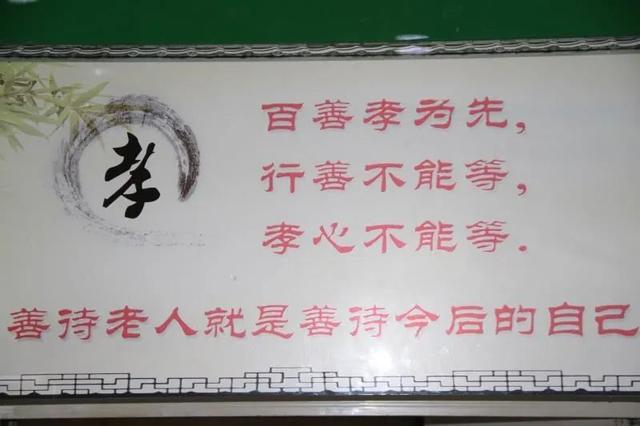 孝
百善孝为先，
行善不能等，
孝心不能等.
善待老人就是善待今后的自己